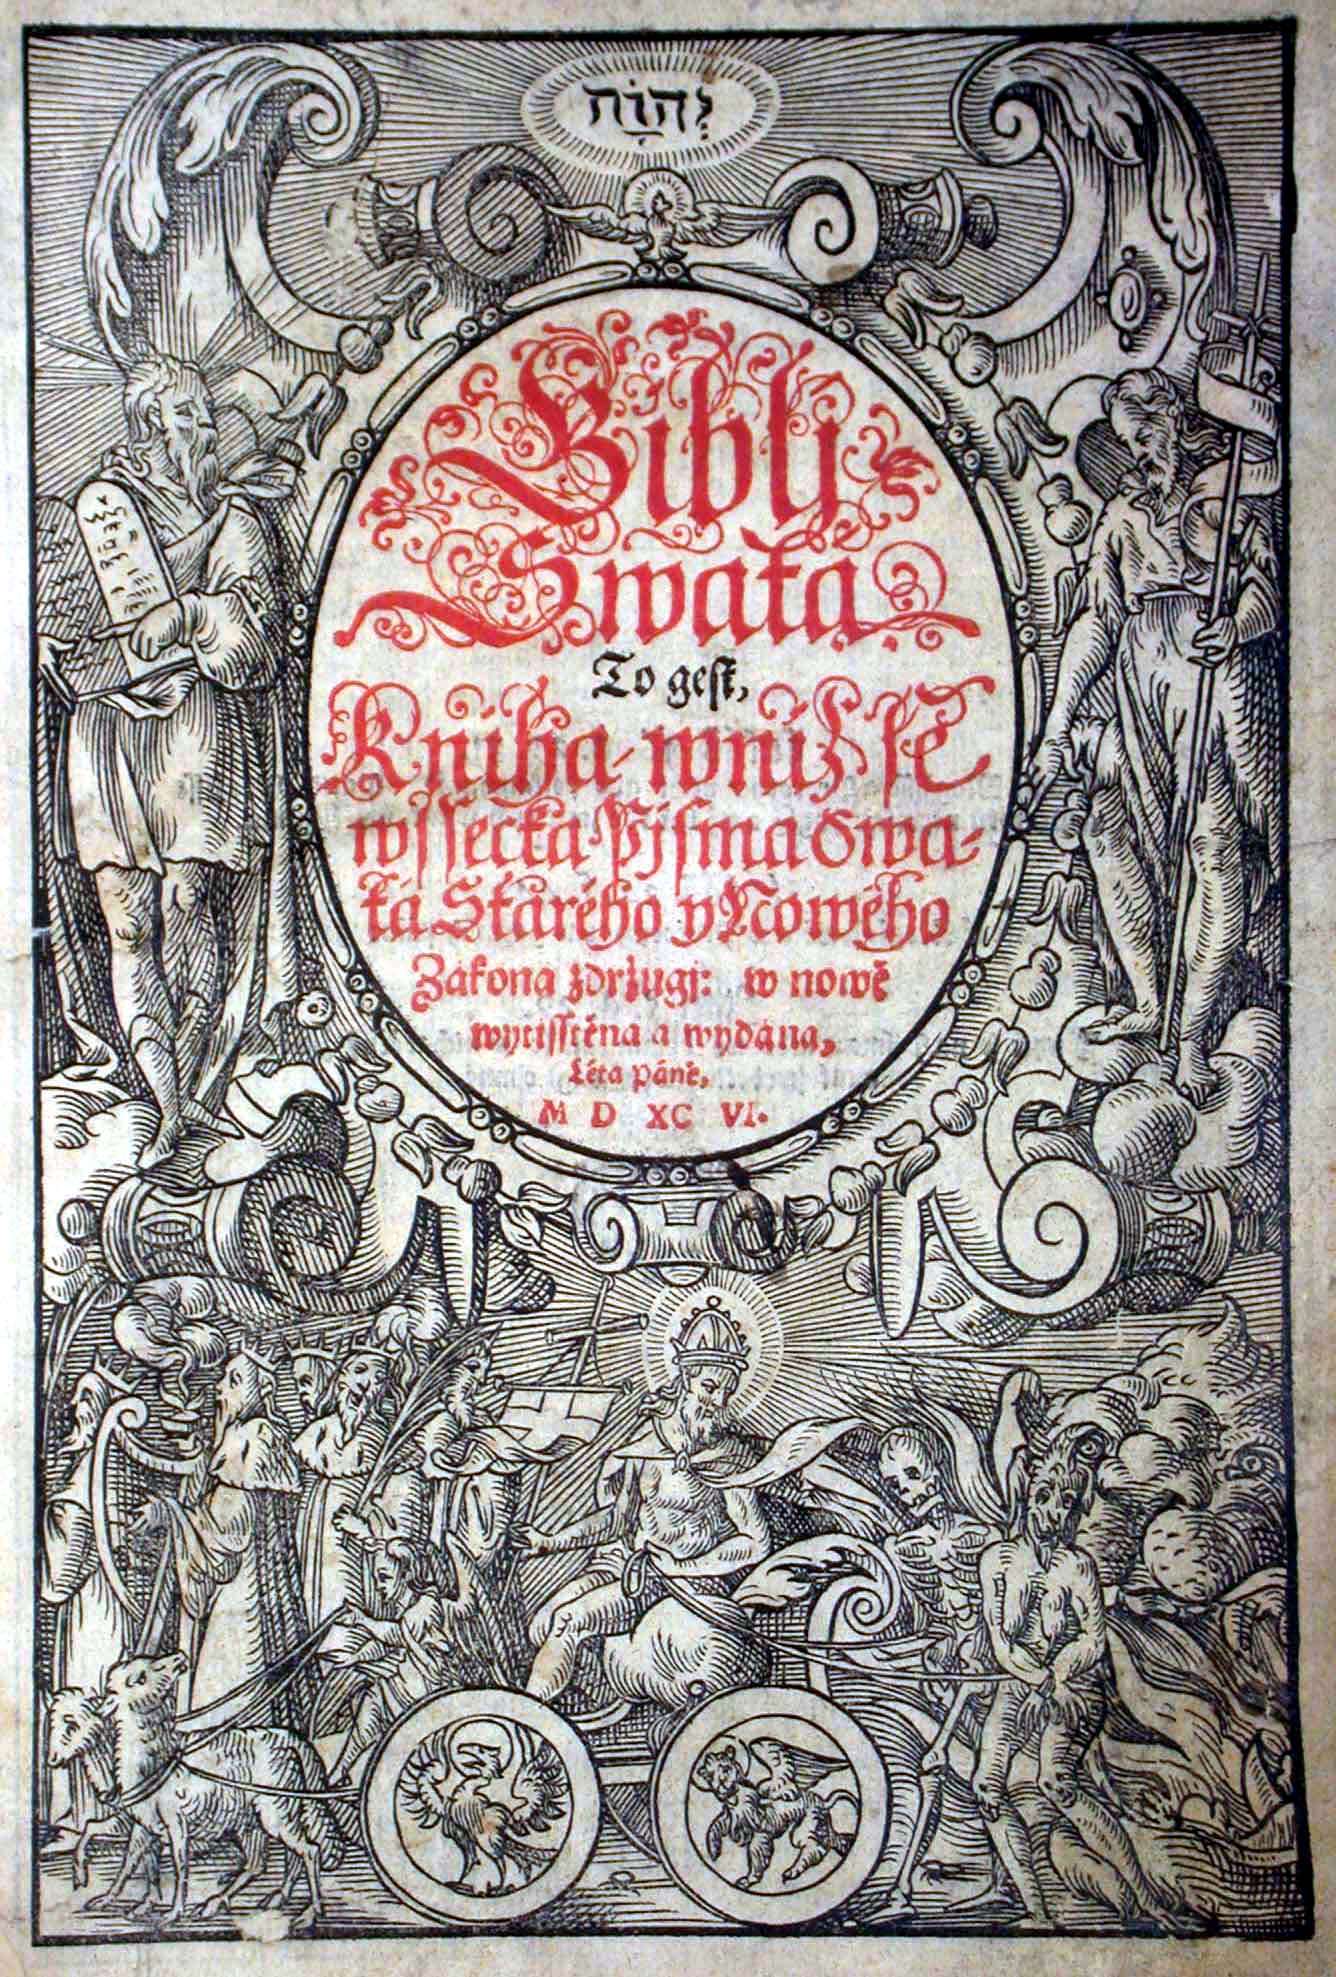 יְהוָה
Biblj
Swatá
To gest,
Kniha, w níž se
wssecka Pjsma Swa-
tá Starého y Nowého
Zákona zdržugj: w nowě
wytisstěna a wydána,
Léta Páně,
M D XC VI.